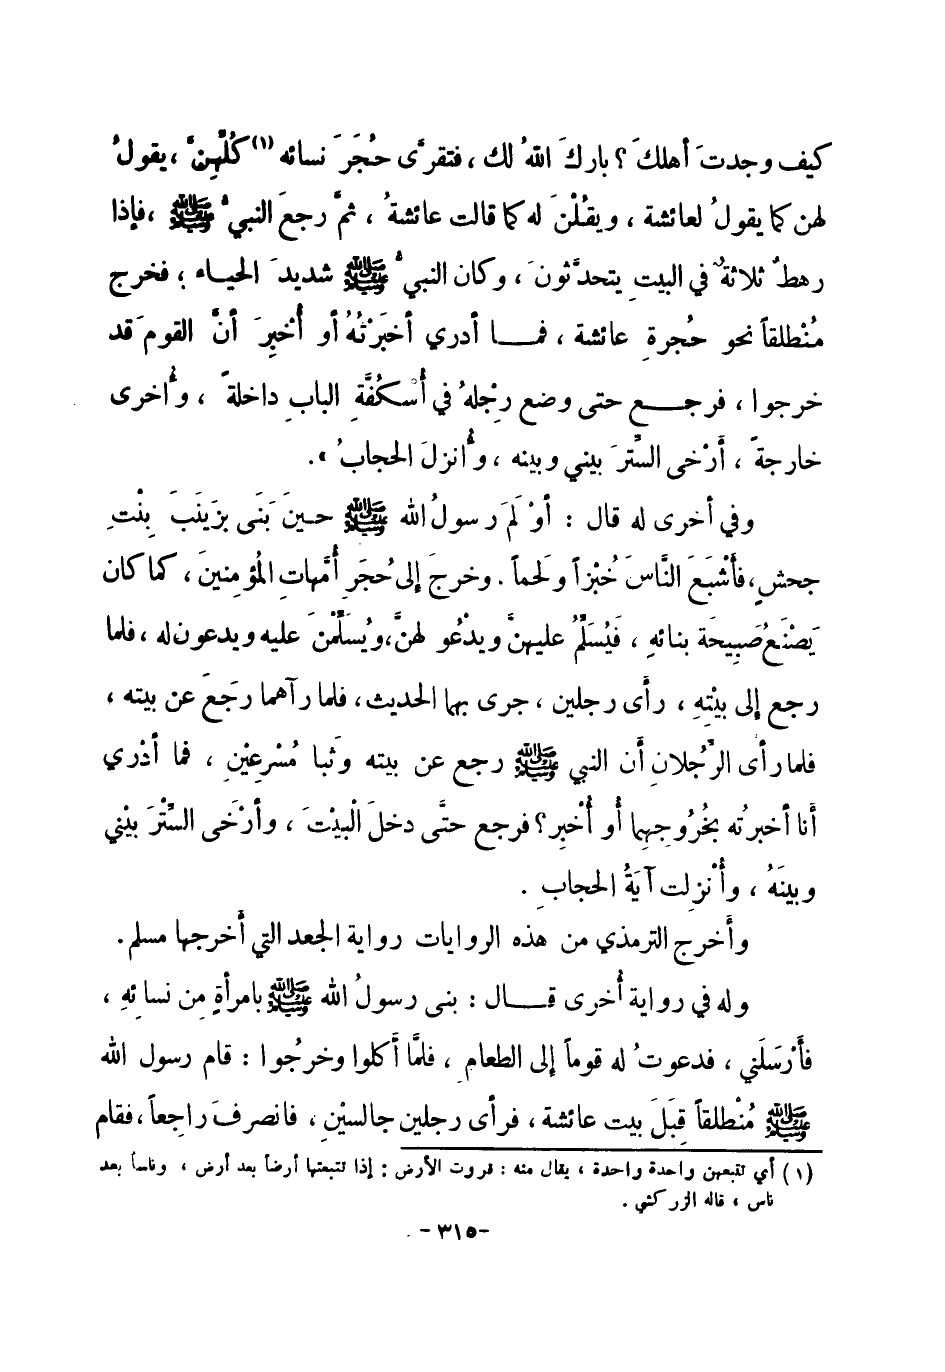 كيف وجدتَ أهلكَ ؟ باركَ اللهُ لك ، فتقرَّى حُجَرَ نسائه (١) كُلِّهِنَّ ، يقولُ
لهن كما يقولُ لعائشة ، ويقُلْنَ له كما قالت عائشةُ ، ثمَّ رجعَ النبيُّ ﷺ ، فإذا
رهطٌ ثلاثةٌ في البيتِ يتحدَّثونَ ، وكان النبيُّ ﷺ شديدَ الحياء ، فخرج
مُنْطلقاً نحو حُجرةِ عائشة ، فمـا أدري أخبَرْتُهُ أو أُخْبِرَ أنَّ القومَ قد
خرجوا ، فرجـع حتى وضع رِجْلهُ في أُسْكُفَّةِ البابِ داخلةً ، وأُخرى
خارجةً ، أَرْخى السِّترَ بيني وبينه ، وأُنزلَ الحجابُ » .
وفي أخرى له قال : أوْلَمَ رسولُ الله ﷺ حينَ بَنَى بزَينَبَ بِنْتِ
جحشٍ ، فأَشْبَعَ النَّاسَ خُبْزاً ولَحماً . وخرجَ إلى حُجَرِ أُمَّهاتِ المُؤمِنينَ ، كما كان
يَصْنَعُ صَبِيحَةَ بنائهِ ، فَيُسَلِّمُ عليهنَّ ويدْعُو لهنَّ ، ويُسَلِّمْنَ عليه ويدعون له ، فلما
رجع إلى بيْتِهِ ، رأى رجلين ، جرى بهما الحديث ، فلما رآهما رَجَعَ عن بيته ،
فلما رأى الرَّجُلانِ أن النبي ﷺ رجع عن بيته وَثبا مُسْرِعيْنِ ، فما أدْري
أنا أخبرتُه بخُرُوجِهِما أو أُخْبِر ؟ فرجع حتَّى دخلَ الْبيْتَ ، وأرْخَى السِّتْرَ بيْني
وبينَهُ ، وأُنْزِلت آيَةُ الحجابِ .
وأخرج الترمذي من هذه الروايات رواية الجعد التي أخرجها مسلم .
وله في رواية أُخرى قـال : بنى رسولُ الله ﷺ بامرأةٍ مِن نسائهِ ،
فأَرْسَلَني ، فدعوتُ له قوماً إلى الطعامِ ، فلمَّا أكلوا وخرجُوا : قام رسول الله
ﷺ مُنْطلقاً قِبَلَ بيت عائشة ، فرأى رجلين جالسيْنِ ، فانصرفَ راجعاً ، فقام
(١) أي تتبعهن واحدة واحدة ، يقال منه : قروت الأرض : إذا تتبعتها أرضاً بعد أرض ، وناساً بعد
ناس ، قاله الزركشي .
- ٣١٥ -